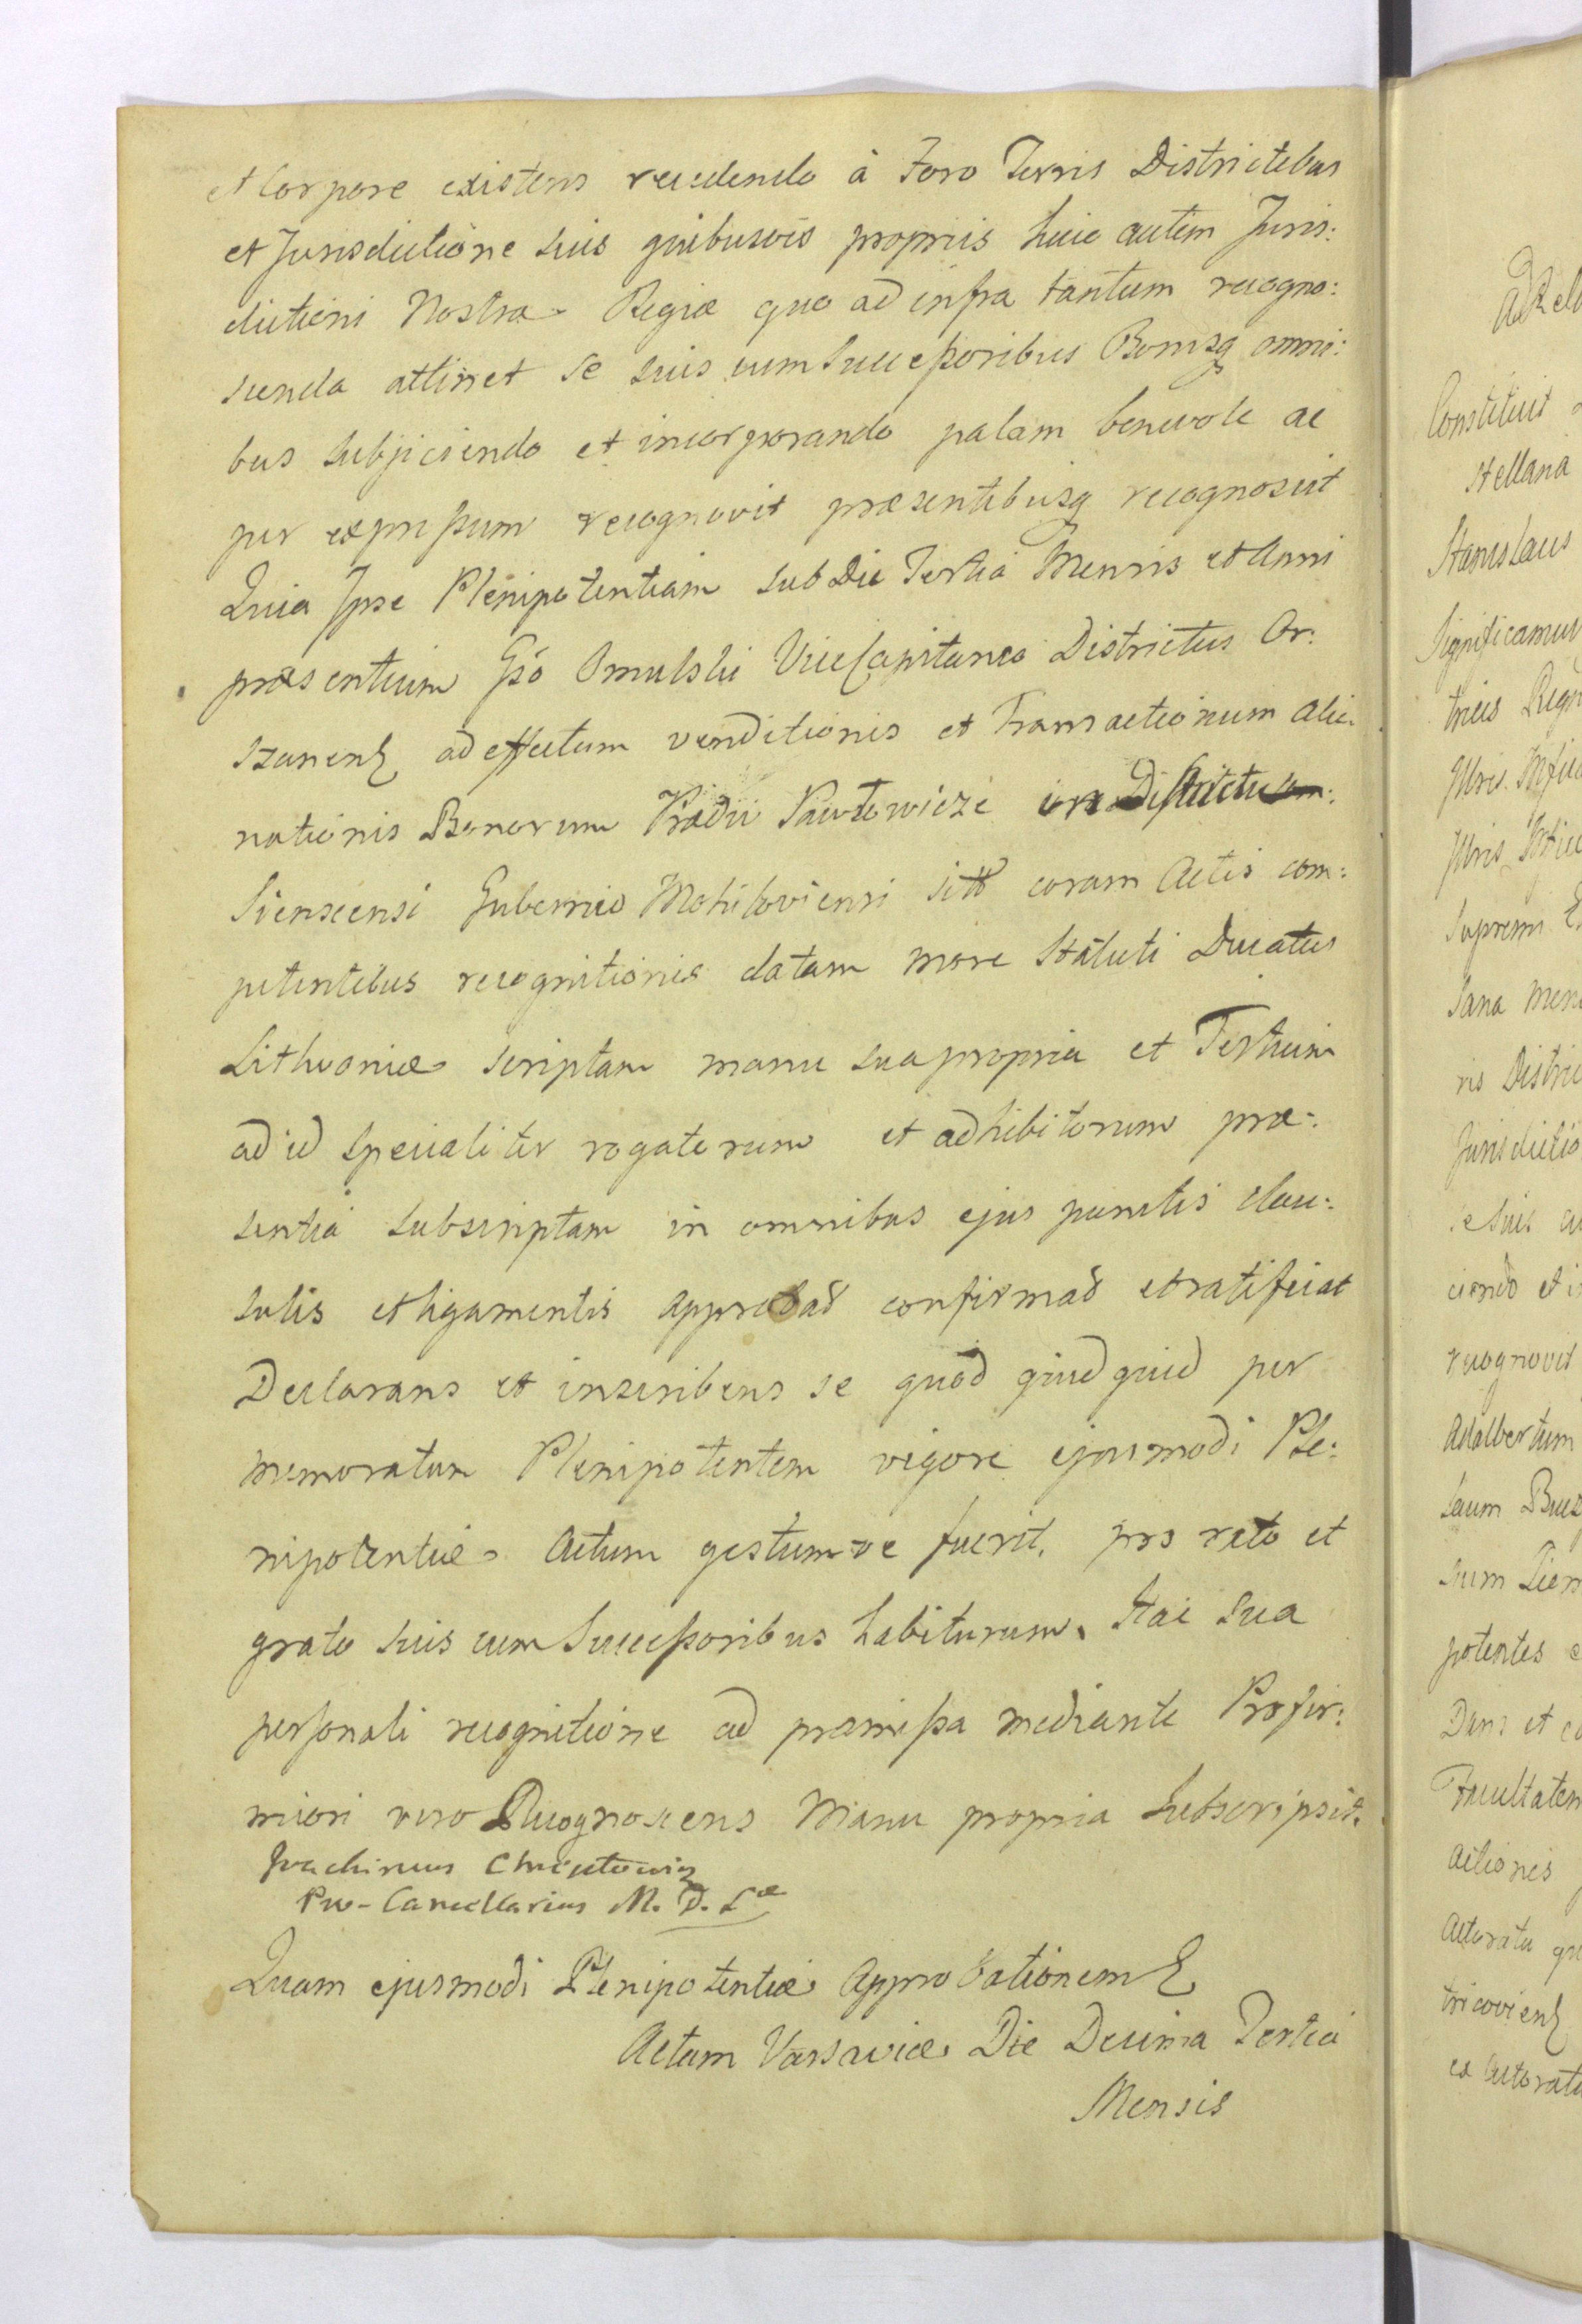 et Corpore existens recedendo à Foro Terris Districtibus
et Jurisdictione suis quibusvis propriis huic autem Juris:
dictioni Nostræ Regiæ quo ad infra tantum recogno:
scenda attinet se suis cum Successoribus Bonisq omni:
bus subjiciendo et incorporando palam benevole ac
per expressum recognovit præsentibusq recognoscit
Quia Ipse Plenipotentiam sub Die Tertia Mensis et Anni
præsentium Gso Omulski ViceCapitaneo Districtus Or:
szanens ad effectum venditionis et Transactionum alie:
nationis Bonorum Prædii Pawłowicze in Districtu
Siensensi Gubernio Mohiloviensi sitt coram Actis com:
petentibus recognitionis datam more Statuti Ducatus
Lithvaniæ scriptam manu sua propria et Testium
ad id specialiter rogatorum et adhibitorum præ:
sentia subscriptam in omnibus ejus punctis clau:
sulis et ligamentis approbat confirmat et ratificat
Declarans et inscribens se quod quidquid per
memoratum Plenipotentem vigore ejusmodi Ple:
nipotentiæ Actum gestumve fuerit, pro rato et
grato suis cum Successoribus habiturum. Hac sua
personali recognitione ad præmissa mediante Profir:
miori vero Recognoscens Manu propria subscripsit.
Joachimus Chreptowicz
Pro-Cancellarius M. D. Læ
Quam ejusmodi Plenipotentiæ Approbationem
Actum Varsaviæ Die Decima Tertia
Mensis
Constituit
stellana
Stanislaus
Significamus
tricis Regn
Supremi
Sana Men
ris Distric
Jurisdictio
se suis cu
ciendo et i
recognovit
Adalbertum
potentes
Dans et co
Facultatem
Actoratu
tricoviens
ex Actoratu